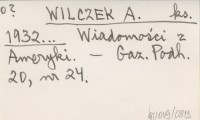 0? WILCZEK A. ks.
1932... Wiadomości z
Ameryki. — Gaz. Podh.
20, nr 24.